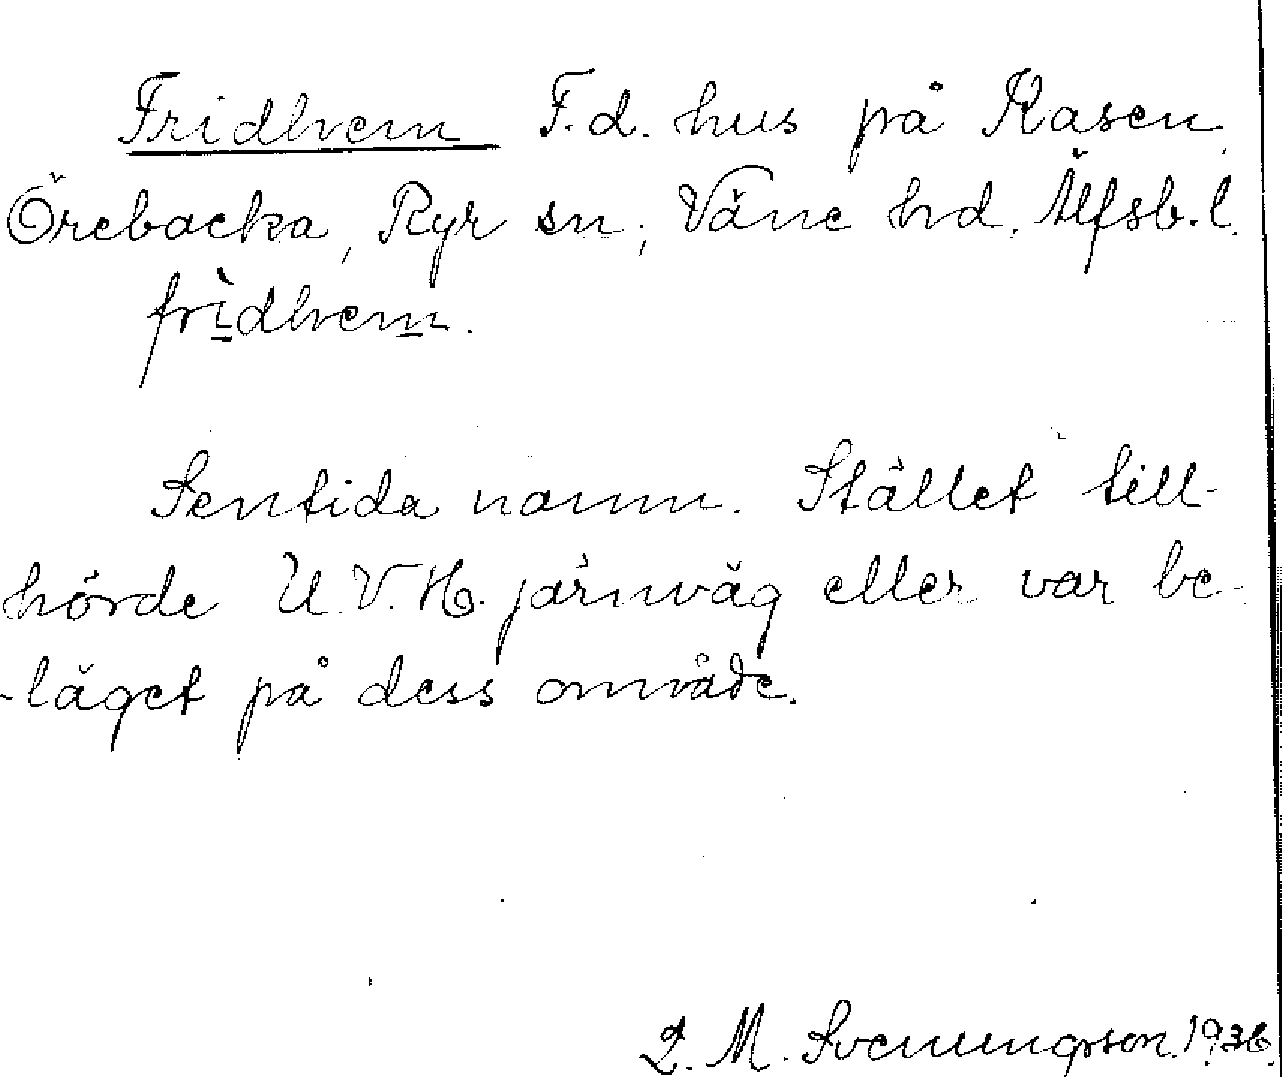 Fridhem F.d. hus på Rasen,
Örebacka, Ryr sn, Väne hd. Älfsb. l.
frìdhem.
Sentida namn. Stället till-
hörde U.V.H. järnväg eller var be-
-läget på dess område.
L. M. Svenungsson 1936.